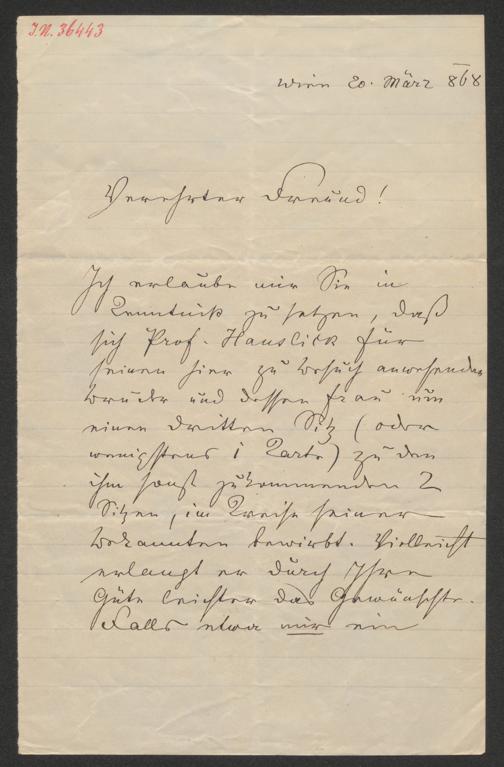 I.N. 36443
Wien 20. März 868
Verehrter Freund!
Ich erlaube mir Sie in
Kenntniß zu setzen, daß
sich Prof. Hanslick für
seinen hier zu Besuch anwesenden
Bruder und dessen Frau um
einen dritten Sitz (oder
wenigstens 1 Karte) zu den
ihm sonst zukommenden 2
Sitzen, im Kreise seiner
Bekannten bewirbt. Vielleicht
erlangt er durch Ihre
Güte leichter das Gewünschte.
Falls etwa mir ein